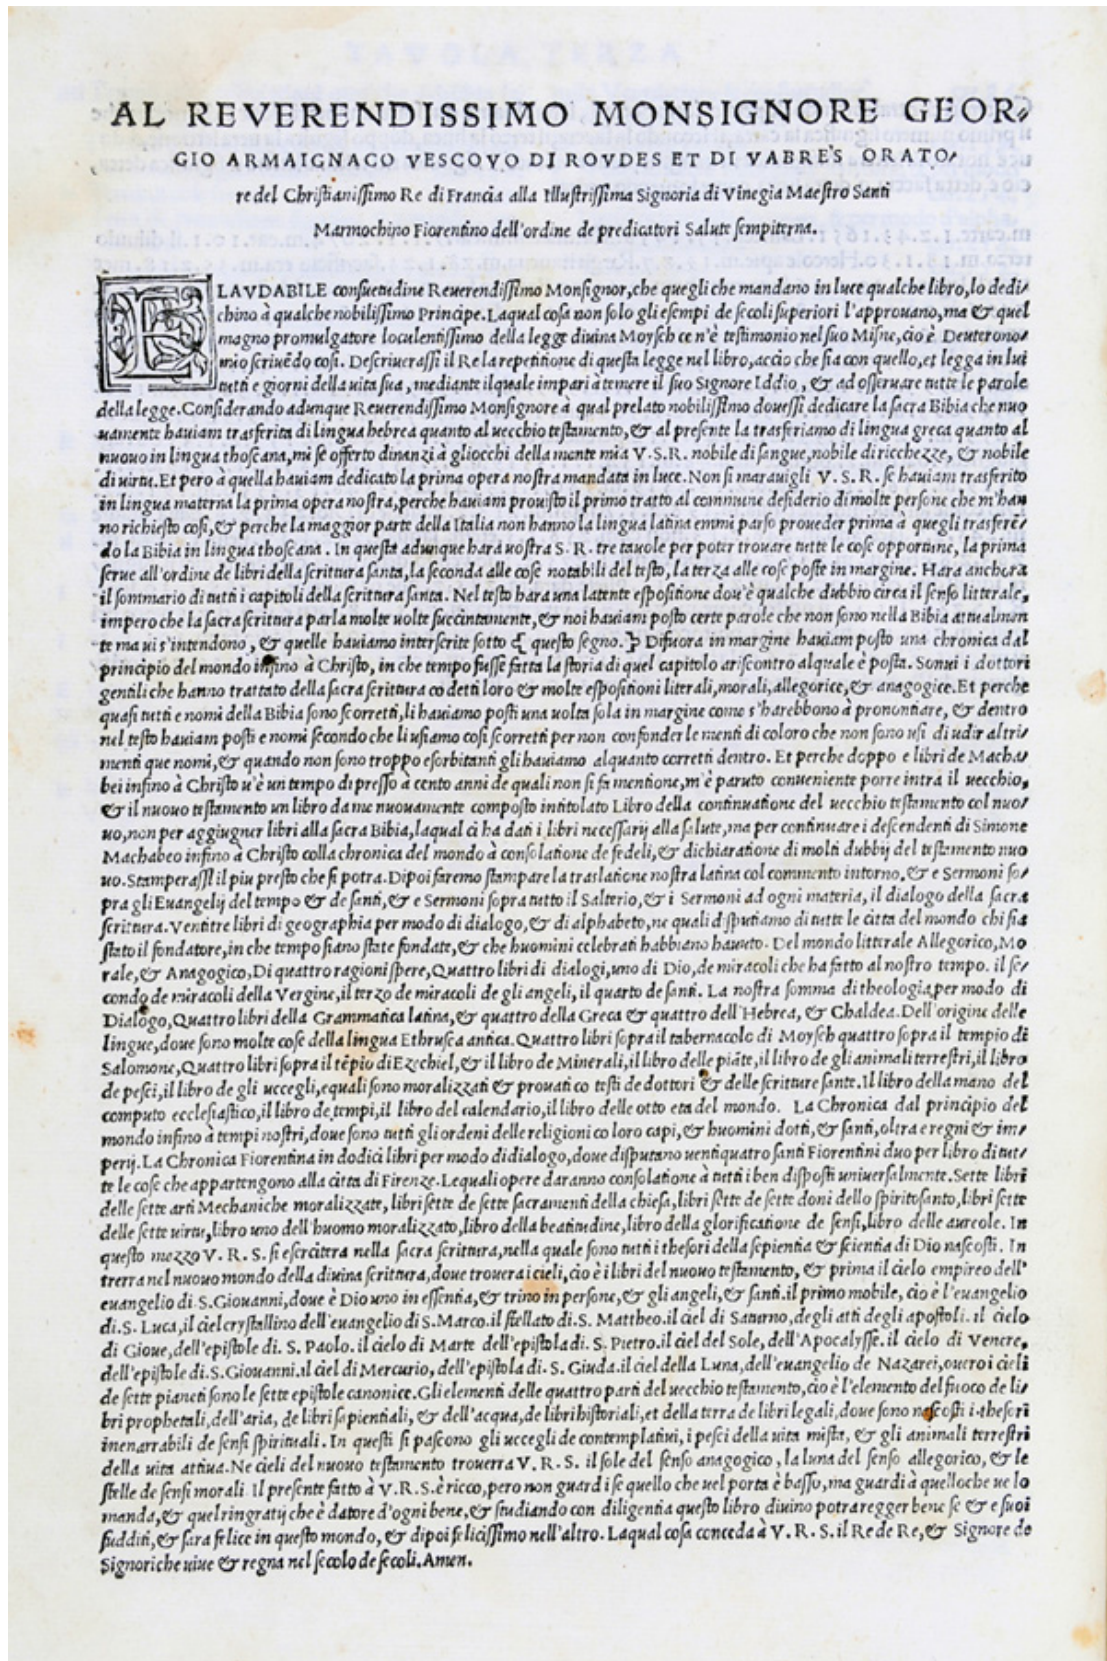 AL REVERENDISSIMO MONSIGNORE GEOR/
GIO ARMAIGNACO VESCOVO DI ROVDES ET DI VABRES ORATO/
re del Christianissimo Re di Francia alla Illustrissima Signoria di Vinegia Maestro Santi
Marmochino Fiorentino dell'ordine de predicatori Salute sempiterna.
E LAVDABILE consuetudine Reverendissimo Monsignor, che quegli che mandano in luce qualche libro, lo dedi/
chino à qualche nobilissimo Principe. Laqual cosa non solo gli esempi de secoli superiori l'approuano, ma & quel
magno promulgatore loculentissimo della legge diuina Moyseh ce n'è testimonio nel suo Misne, cio è Deuterono/
mio scriuēdo cosi. Descriuerassi il Re la repetitione di questa legge nel libro, accio che sia con quello, et legga in lui
tutti e giorni della uita sua, mediante ilquale impari à temere il suo Signore Iddio, & ad osseruare tutte le parole
della legge. Considerando adunque Reverendissimo Monsignore à qual prelato nobilissimo douessi dedicare la sacra Bibia che nuo
uamente hauiam trasferita di lingua hebrea quanto al uecchio testamento, & al presente la trasferiamo di lingua greca quanto al
nuouo in lingua thoscana, mi se offerto dinanzi à gliocchi della mente mia V.S.R. nobile di sangue, nobile di ricchezze, & nobile
di uirtu. Et pero à quella hauiam dedicato la prima opera nostra mandata in luce. Non si marauigli V. S. R. se hauiam trasferito
in lingua materna la prima opera nostra, perche hauiam prouisto il primo tratto al commune desiderio di molte persone che m'han
no richiesto cosi, & perche la maggior parte della Italia non hanno la lingua latina emmi parso proueder prima à quegli trasferē/
do la Bibia in lingua thoscana. In questa adunque hara uostra S. R. tre tauole per poter trouare tutte le cose opportune, la prima
serue all'ordine de libri della scrittura santa, la seconda alle cose notabili del testo, la terza alle cose poste in margine. Hara anchora
il sommario di tutti i capitoli della scrittura santa. Nel testo hara una latente espositione dou'è qualche dubbio circa il senso litterale,
impero che la sacra scrittura parla molte uolte succintamente, & noi hauiam posto certe parole che non sono nella Bibia attualmen
te ma ui s'intendono, & quelle hauiamo interscrite sotto questo segno. Difuora in margine hauiam posto una chronica dal
principio del mondo infino à Christo, in che tempo fusse fatta la storia di quel capitolo ariscontro alquale è posta. Sonui i dottori
gentili che hanno trattato della sacra scrittura co detti loro & molte espositioni literali, morali, allegorice, & anagogice. Et perche
quasi tutti e nomi della Bibia sono scorretti, li hauiamo posti una uolta sola in margine como s'harebbono à prononciare, & dentro
nel testo hauiam posti e nomi secondo che li usiamo cosi scorretti per non confonder le menti di coloro che non sono usi di udir altri/
menti que nomi, & quando non sono troppo esorbitanti gli hauiamo alquanto corretti dentro. Et perche doppo e libri de Macha/
bei infino à Christo u'è un tempo di presso à cento anni de quali non si fa mentione, m'è paruto conueniente porre intra il uecchio,
& il nuouo testamento un libro da me nuouamente composto intitolato Libro della continuatione del uecchio testamento col nuo/
uo, non per aggiugner libri alla sacra Bibia, laqual ci ha dati i libri necessarij alla salute, ma per continuare i descendenti di Simone
Machabeo infino à Christo colla chronica del mondo à consolatione de fedeli, & dichiaratione di molti dubbij del testamento nuo
uo. Stamperassi il piu presto che si potra. Dipoi faremo stampare la traslatione nostra latina col commento intorno, & e Sermoni so/
pra gli Euangelij del tempo & de santi, & e Sermoni sopra tutto il Salterio, & i Sermoni ad ogni materia, il dialogo della sacra
scrittura. Ventitre libri di geographia per modo di dialogo, & di alphabeto, ne quali disputiamo di tutte le citta del mondo chi sia
stato il fondatore, in che tempo siano state fondate, & che huomini celebrati habbiano hauuto. Del mondo litterale Allegorico, Mo
rale, & Anagogico, Di quattro ragioni spere, Quattro libri di dialogi, uno di Dio, de miracoli che ha fatto al nostro tempo. il se/
condo de miracoli della Vergine, il terzo de miracoli de gli angeli, il quarto de santi. La nostra somma di theologia per modo di
Dialogo, Quattro libri della Grammatica latina, & quattro della Greca & quattro dell'Hebrea, & Chaldea. Dell'origine delle
lingue, doue sono molte cose della lingua Ethrusca antica. Quattro libri sopra il tabernacolo di Moyseh quattro sopra il tempio di
Salomone, Quattro libri sopra il tēpio di Ezechiel, & il libro de Minerali, il libro delle piāte, il libro de gli animali terrestri, il libro
de pesci, il libro de gli uccegli, equali sono moralizzati & prouati co testi de dottori & delle scritture sante. Il libro della mano del
computo ecclesiastico, il libro de tempi, il libro del calendario, il libro delle otto eta del mondo. La Chronica dal principio del
mondo infino à tempi nostri, doue sono tutti gli ordeni delle religioni co loro capi, & huomini dotti, & santi, oltra e regni & im/
perij. La Chronica Fiorentina in dodici libri per modo di dialogo, doue disputano uentiquatro santi Fiorentini duo per libro di tut/
te le cose che appartengono alla citta di Firenze. Lequali opere daranno consolatione à tutti i ben disposti uniuersalmente. Sette libri
delle sette arti Mechaniche moralizzate, libri sette de sette sacramenti della chiesa, libri sette de sette doni dello spiritosanto, libri sette
delle sette uirtu, libro uno dell'huomo moralizzato, libro della beatitudine, libro della glorificatione de sensi, libro delle aureole. In
questo mezzo V. R. S. si esercitera nella sacra scrittura, nella quale sono tutti i thesori della sepientia & scientia di Dio nascosti. In
trerra nel nuouo mondo della diuina scrittura, doue trouera i cieli, cio è i libri del nuouo testamento, & prima il cielo empireo dell'
euangelio di S. Giouanni, doue è Dio uno in essentia, & trino in persone, & gli angeli, & santi. il primo mobile, cio è l'euangelio
di. S. Luca, il ciel crystallino dell'euangelio di S. Marco. il stellato di S. Mattheo. il ciel di Saturno, degli atti degli apostoli. il cielo
di Gioue, dell'epistole di S. Paolo. il cielo di Marte dell'epistola di S. Pietro. il ciel del Sole, dell'Apocalysse. il cielo di Venere,
dell'epistole di. S. Giouanni. il ciel di Mercurio, dell'epistola di. S. Giuda. il ciel della Luna, dell'euangelio de Nazarei, ouero i cieli
de sette pianeti sono le sette epistole canonice. Gli elementi delle quattro parti del uecchio testamento, cio è l'elemento del fuoco de li/
bri prophetali, dell'aria, de libri sapientiali, & dell'acqua, de libri historiali, et della terra de libri legali, doue sono nascosti i thesori
inenarrabili de sensi spirituali. In questi si pascono gli uccegli de contemplatiui, i pesci della uita mista, & gli animali terrestri
della uita attiua. Ne cieli del nuouo testamento trouerra V. R. S. il sole del senso anagogico, la luna del senso allegorico, & le
stelle de sensi morali. Il presente fatto à V. R. S. è ricco, pero non guardi se quello che uel porta è basso, ma guardi à quello che ue lo
manda, & quel ringratij che è datore d'ogni bene, & studiando con diligentia questo libro diuino potra regger bene se & e suoi
sudditi, & sara felice in questo mondo, & dipoi felicissimo nell'altro. Laqual cosa conceda à V. R. S. il Re de Re, & Signore de
Signori che uiue & regna nel secolo de secoli. Amen.